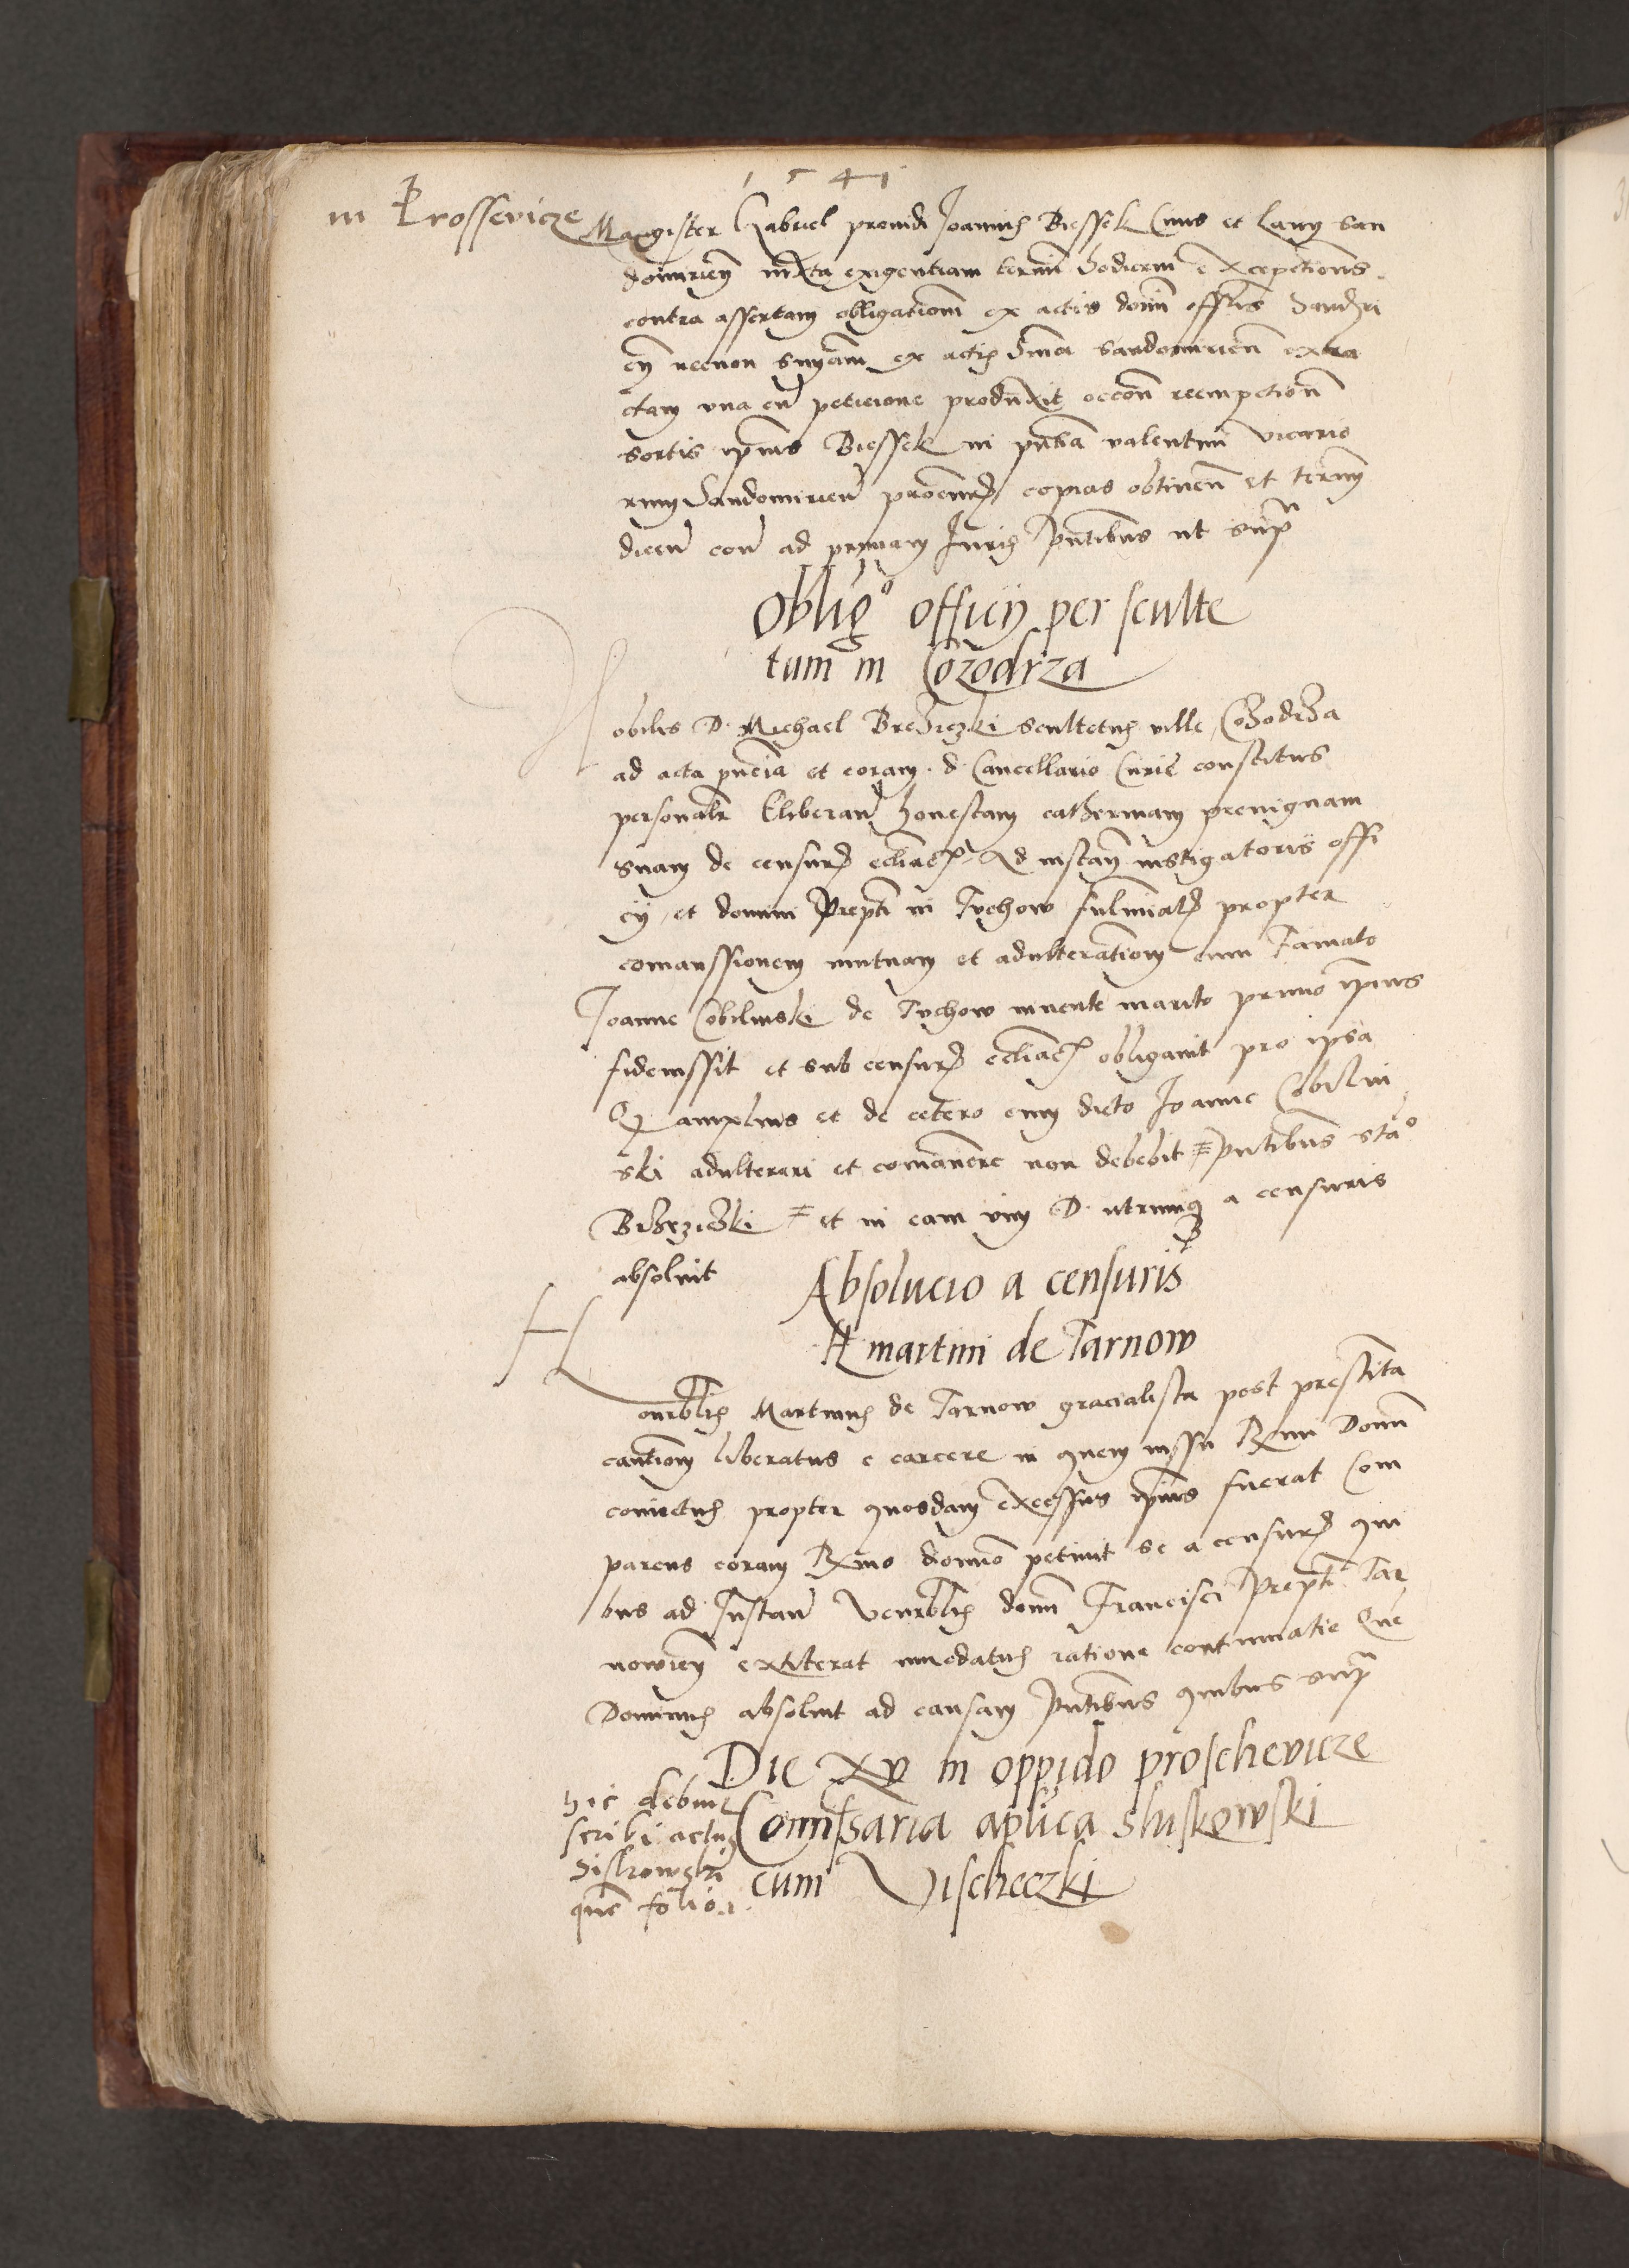 1541
in Prossevicze
Magister Gabriel providi Joannis Biessek Civis et lany San
domirien iuxta exigentiam termi hodierni exceptiones
contra assertam obligationem ex actis domi offlis Sandomiri
en necnon snyam ex actis Sandomirien extra
ctam una cu peticione produxit occone reempcionis
sortis ipius Biessek in pntia valentini vicario
rum Sandomirien procuris copias obtinen et termi
dicen con ad primam Juris Pntibus ut sup
Oblig° officij per sculte
tum in Cozodrza
Nobilis D. Michael Brzeziczki scultetus ville Cozodrza
ad acta pncia et coram d Cancellario Curie constitus
personalr Eliberan honestam catherinam prevignam
suam de censuris ecliacis Ad instan instigatoris offi
cij et domini Prepti in Tuchow fulminatis propter
comanssionem mutuam et adulterationem cum Famato
Joanne Cobilinski de Tuchow vivente marito primo ipius
fideiussit et sub censuris ecliacis obligavit pro ipsa
Q amplius et de cetero cum dicto Joanne Cobilin
ski adulterari et comanere non debebit Pntibus sta°
Brzeziczki et in eam vim D. utrunq a censuris
absolvit
Absolucio a censuris
H martini de Tarnow
Honrblis Martinus de Tarnow gracialista post prestita
cautionem liberatus e carcere in quem iussu Rmi Domi
coniectus propter quosdam excessus ipius fuerat Com
parens coram Rmo domino petivit se a censuris qui
bus ad Instan Venrblis domi Francisci Prepti Tar
nowien extiterat innodatus ratione contumatie Que
Dominus absolvit ad causam Pntibus quibus sup
Die XV in oppido proschevicze
Comissaria aplica Sluskowski
cum Vischeczki
hic debuit
scribi actus
Siskowski
que folio 1